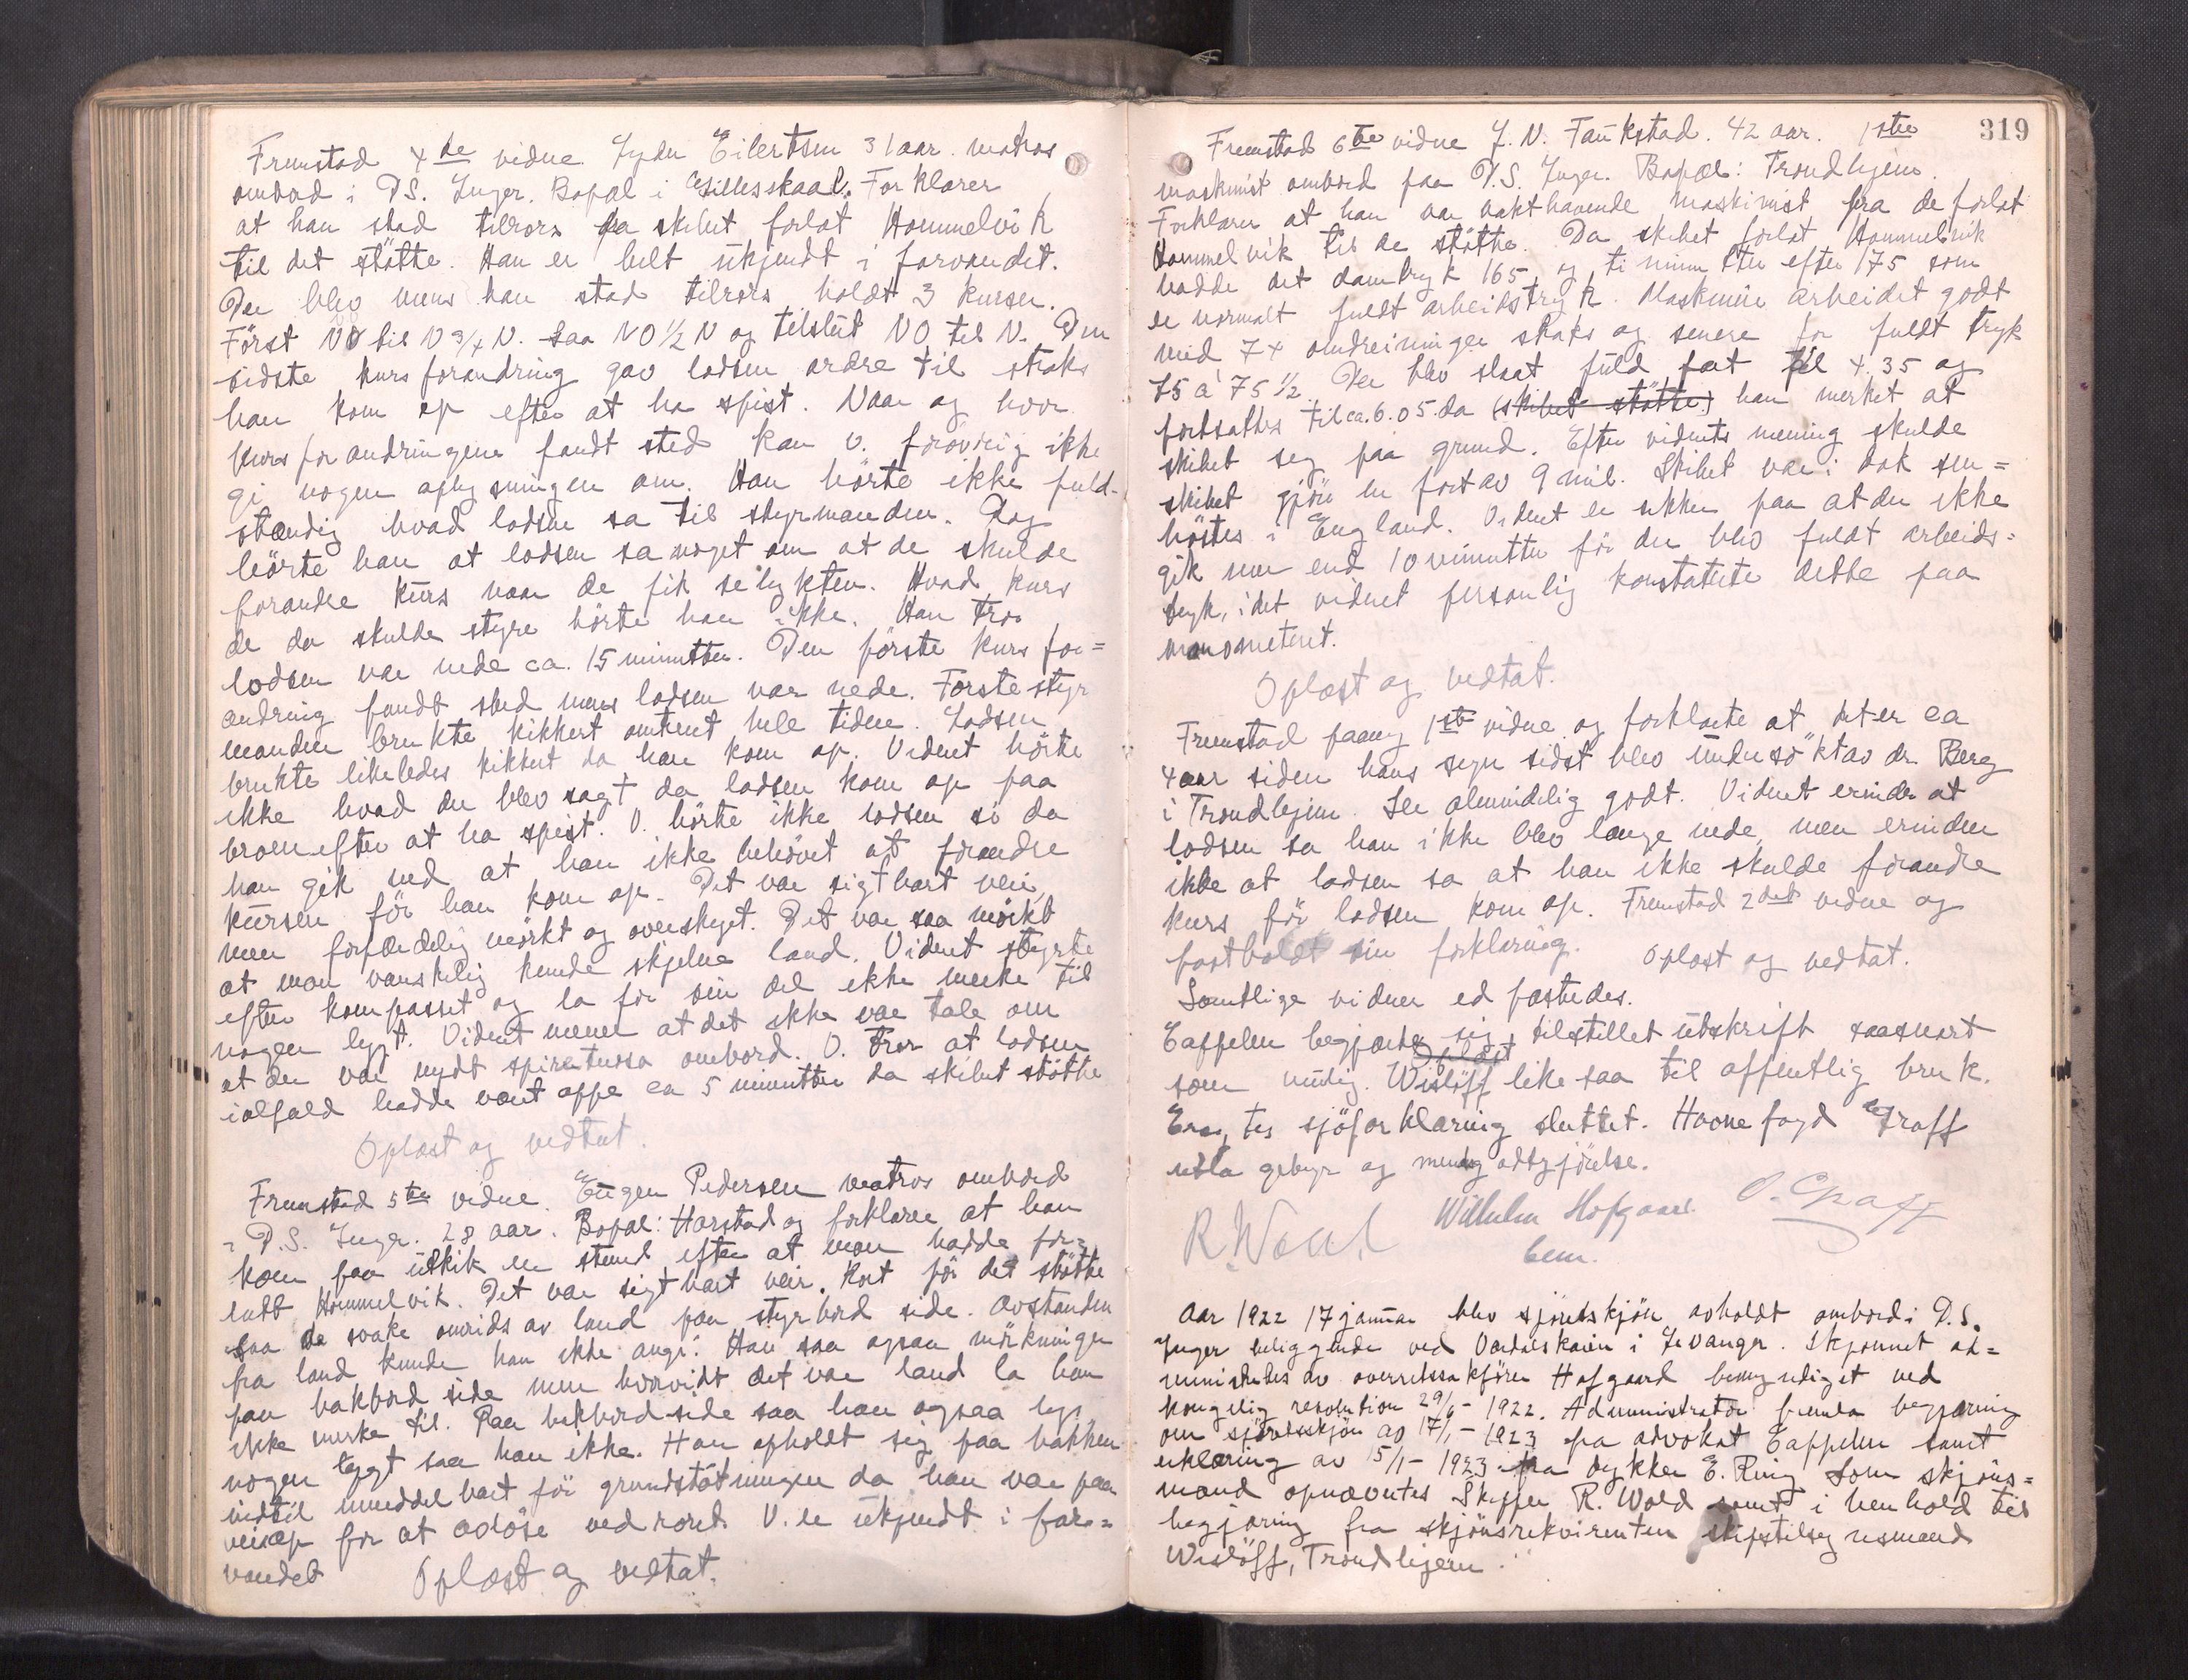 Fremstod 4de vidne Eilertsen 31 aar. matros
ombord i D/S. Inger. Bopæl i Gillesskaal. Forklarer
at han stod tilrors da skibet forlot Hommelvik
til det støtte. Han er helt ukjendt i farvandet.
Der blev mens han stod tilrors holdt 3 kurser.
Først NO til N 3/4 N. saa NO 1/2 N og tilslut NO til N. Den
sidste kursforandring gav lodsen ordre til straks
han kom op efter at ha spist. Naar og hvor
kursforandringene fandt sted kan v. forøvrig ikke
gi nogen oplysningen om. Han hørte ikke fuld-
stændig hvad lodsen sa til styrmanden. Dog
hørte han at lodsen sa noget om at de skulde
forandre kurs naar de fik se lykten. Hvad kurs
de da skulde styre hørte han ikke. Han tror
lodsen var nede ca. 15 minutter. Den første kursfor=
andring fandt sted mens lodsen var nede. Første styr
manden brukte kikkert omtrent hele tiden. Lodsen
brukte likeledes kikkert da han kom op. Vidnet hørte
ikke hvad der blev sagt da lodsen kom op paa
broen efter at ha spist. V. hørte ikke lodsen si da
han gik ned at han ikke behøvet at forandre
kursen før han kom op. Det var sigtbart veir,
men forfærdelig mørkt og overskyet. Det var saa mørkt
at man vanskelig kunde skjelne land. Vidnet styrte
efter kompasset og la for sin del ikke merke til
nogen lygt. Vidnet mener at det ikke var tale om
at der var nydt spirituosa ombord. V. tror at lodsen
ialfald hadde vært oppe ca 5 minutter da skibet støtte
Oplæst og vedtat.
Fremstod 5te vidne. Eugen Pedersen matros ombord
i D.S. Inger. 28 aar. Bopæl: Harstad og forklarer at han
kom paa utkik en stund efter at man hadde for=
latt Hommelvik. Det var sigtbart veir. Kort før det støtte
saa de svake omrids av land paa styrbord side. Avstanden
fra land kunde han ikke angi. Han saa ogsaa mørkninger
paa bakbord side men hvorvidt det var land la han
ikke merke til. Paa bakbord side saa han ogsaa lys,
nogen lygt saa han ikke. Han opholdt sig paa bakken
indtil umiddelbart før grundstøtningen da han var paa
veiop for at avløse ved roret. V. er ukjendt i far=
vandet Oplæst og vedtat.
319
Fremstod 6te vidne J. N. Faukstad. 42 aar. 1ste
maskinist ombord paa D.S. Inger. Bopæl: Trondhjem.
Forklarer at han var vakthavende maskinist fra de forlot
Hommelvik til de støtte. Da skibet forlot Hommelvik
hadde det damtryk 165, og ti minutter efter 175 som
er normalt fuldt arbeidstryk. Maskineri arbeidet godt
med 74 omdreininger straks og senere for fuldt tryk
75 à 75 1/2. Der blev slaat fuld fart til 4.35 og
fortsattes til ca. 6.05 da (skibet støtte) han merket at
skibet seg paa grund. Efter vidnets mening skulde
skibet gjøre en fart av 9 mil. Skibet var i dok sen=
høstes i England. Vidnet er sikker paa at der ikke
gik mer end 10 minutter før der blev fuldt arbeids=
tryk, idet vidnet personlig konstaterte dette paa
manometeret.
Oplæst og vedtat.
Fremstod paany 1ste vidne og forklarte at det er ca
4 aar siden hans syn sidst blev undersøkt av dr. Berg
i Trondhjem. Ser almindelig godt. Vidnet erindrer at
lodsen sa han ikke blev længe nede, men erindrer
ikke at lodsen sa at han ikke skulde forandre
kurs før lodsen kom op. Fremstod 2det vidne og
fastholdt sin forklaring. Oplæst og vedtat.
Samtlige vidner edfæstedes.
Cappelen begjærte sig tilstillet utskrift saasnart
Oplæst
som mulig. Wisløff like saa til offentlig bruk.
tes sjøforklaring sluttet. Havnefogd Graff
gebyr og godtgjørelse.
R. Wold Wilhelm Hofgaard O. Graff
bem.
Aar 1922 17 januar blev sjøretsskjøn avholdt ombord i D.S.
Inger beliggende ved Verdalskaien i Levanger. Skjønnet ad=
ministertes av overretssakfører Hofgaard bemyndiget ved
kongelig resolution 29/6 - 1922. Administrator fremla begjæring
om sjøretsskjøn av 17/1 - 1923 fra advokat Cappelen samt
erklæring av 15/1 - 1923 fra dykker E. Ring. Som skjøns=
mænd opnævntes Skipper R. Wold samt i henhold til
begjæring fra skjønsrekvirenten skipstilsynsmand
Wisløff, Trondhjem.